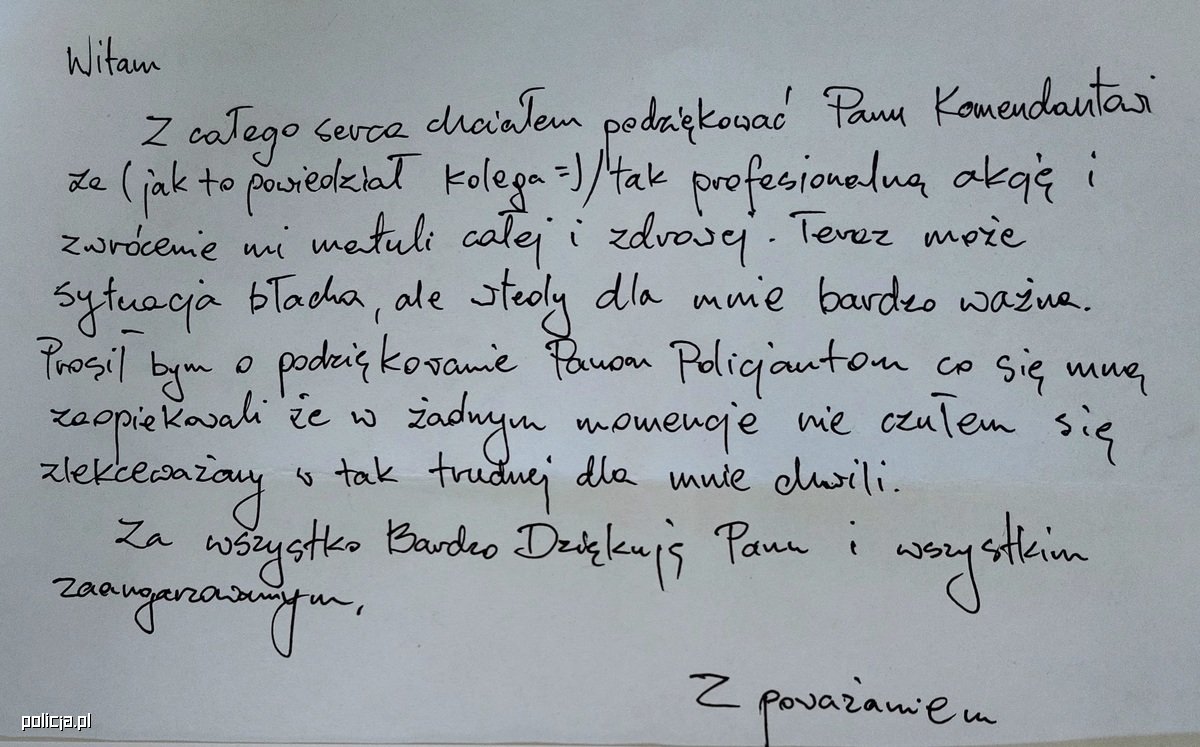 Witam
Z całego serca chciałem podziękować Panu Komendantowi
za (jak to powiedział kolega =)/ tak profesionalną akcję i
zwrócenie mi matuli całej i zdrowej. Teraz może
sytuacja błacha, ale wtedy dla mnie bardzo ważna.
Prosił bym o podziękowanie Panom Policjantom co się mną
zaopiekowali że w żadnym momencje nie czułem się
zlekceważony w tak trudnej dla mnie chwili.
Za wszystko Bardzo Dziękuję Panu i wszystkim
zaangarzowanym,
Z poważaniem
policja.pl